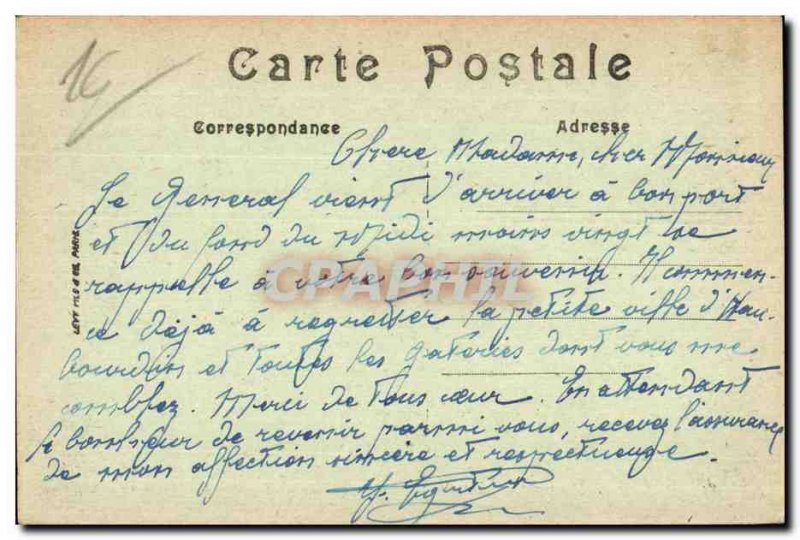 Carte Postale
Correspondance Adresse
Chere Madame, cher Monsieur
Le General vient d'arriver à bon port
et du fond du Midi moins vingt se
rappelle à votre bon souvenir. Il commen-
ce déjà à regretter la petite ville d'Hau-
bourdin et toutes les gateries dont vous me
comblez. Merci de tous cœur. En attendant
le bonheur de revenir parmi vous, recevez l'assurance
de mon affection sincère et respectueuse.
LEVY FILS & CIE, PARIS
CPAPHIL